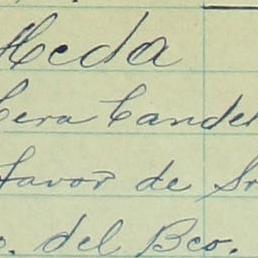 Meda
Cera Cande
favor de Sr
o. del Bco.